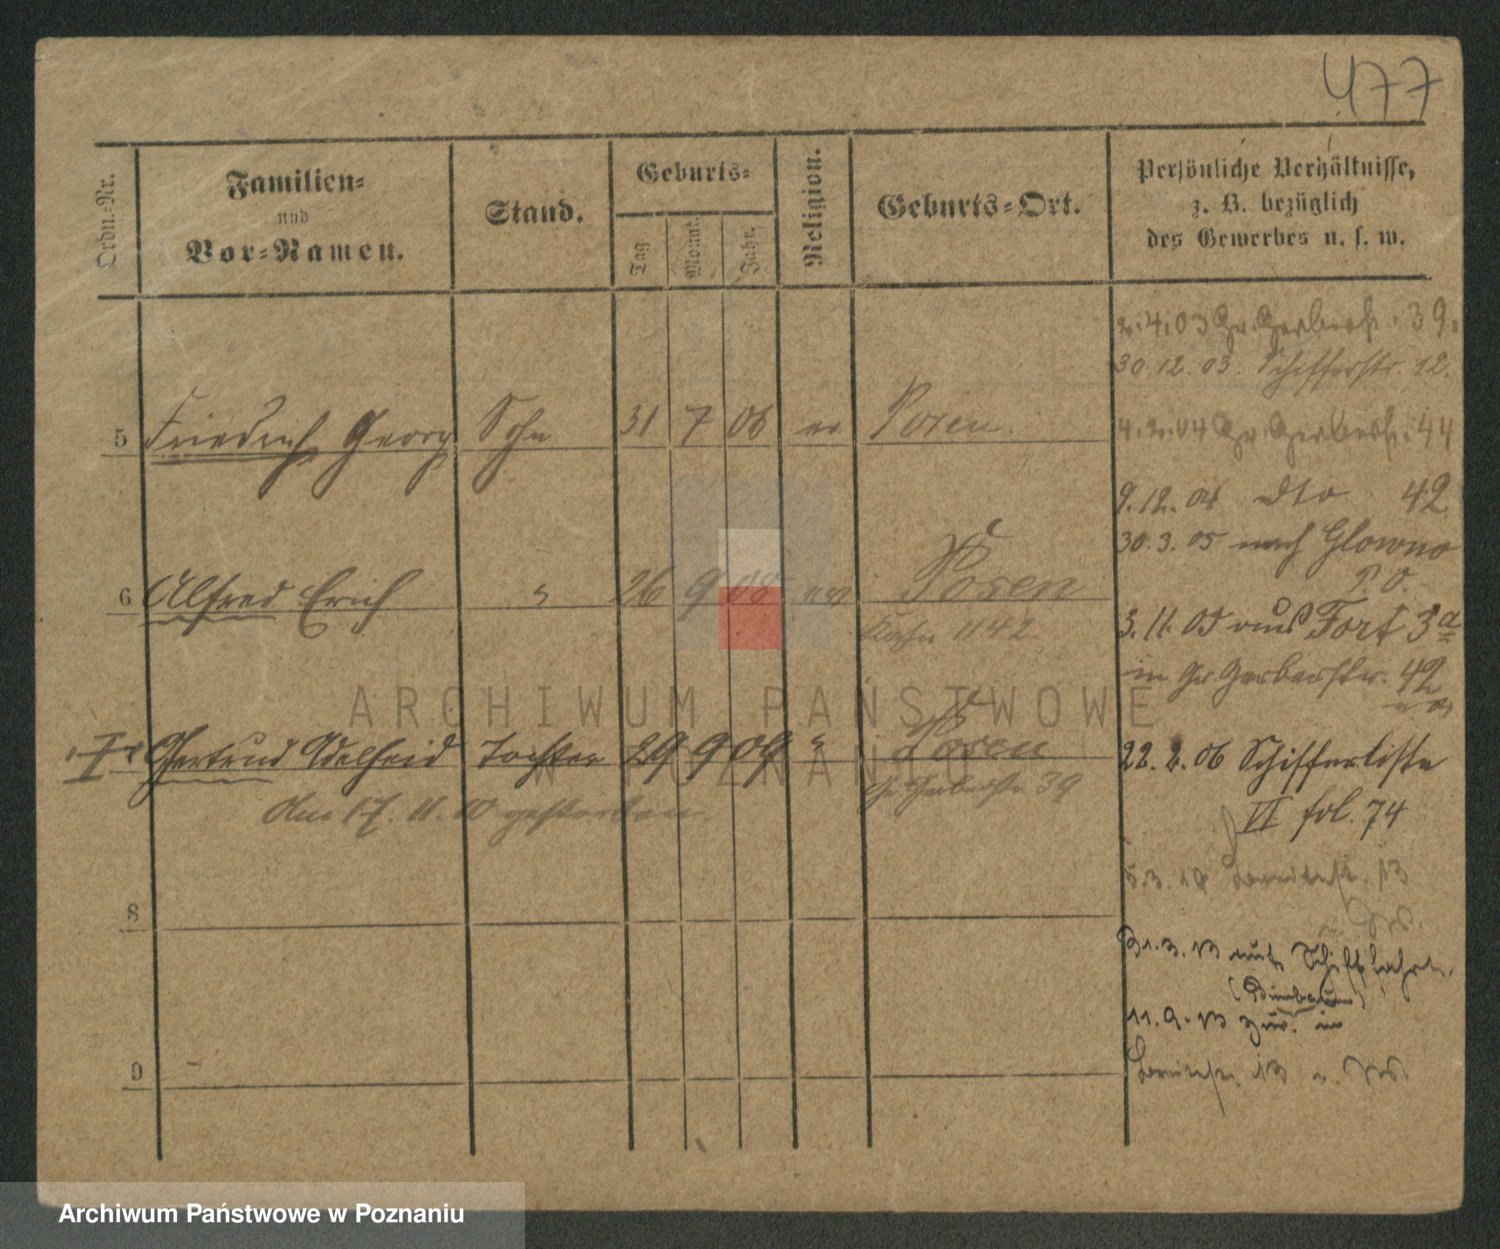 477
Ordn.-Nr.
Familien-
und
Vor-Namen.
Stand.
Geburts-
Tag
Monat.
Jahr.
Religion.
Geburts-Ort.
Persönliche Verhältnisse,
z. B. bezüglich
des Gewerbes u. s. w.
2.4.03 Gr. Gerberstr. 39.
30.12.03. Schifferstr. 12.
4.2.04 Gr. Gerberstr. 44
5 Friedrich Georg Sohn 31 7 06 ev Posen.
9.12.04 dto 42
30.3.05 nach Glowno
P. O.
6 Alfred Erich " 26 9 08 ev Posen
Kahn 1142
3.11.05 aus Fort 3a
in Gr. Gerberstr. 42
Gertrud Adelheid Tochter 29 9 09 " Posen
Gr. Gerberstr. 39
Am 17.11.10 gestorben
22.2.06 Schifferliste
VI fol. 74
5.3.10 13
8
31.3.13 auf Schifffahrt.
11.9.13 zur. in
9
13
ARCHIWUM PAŃSTWOWE
W POZNANIU
Archiwum Państwowe w Poznaniu